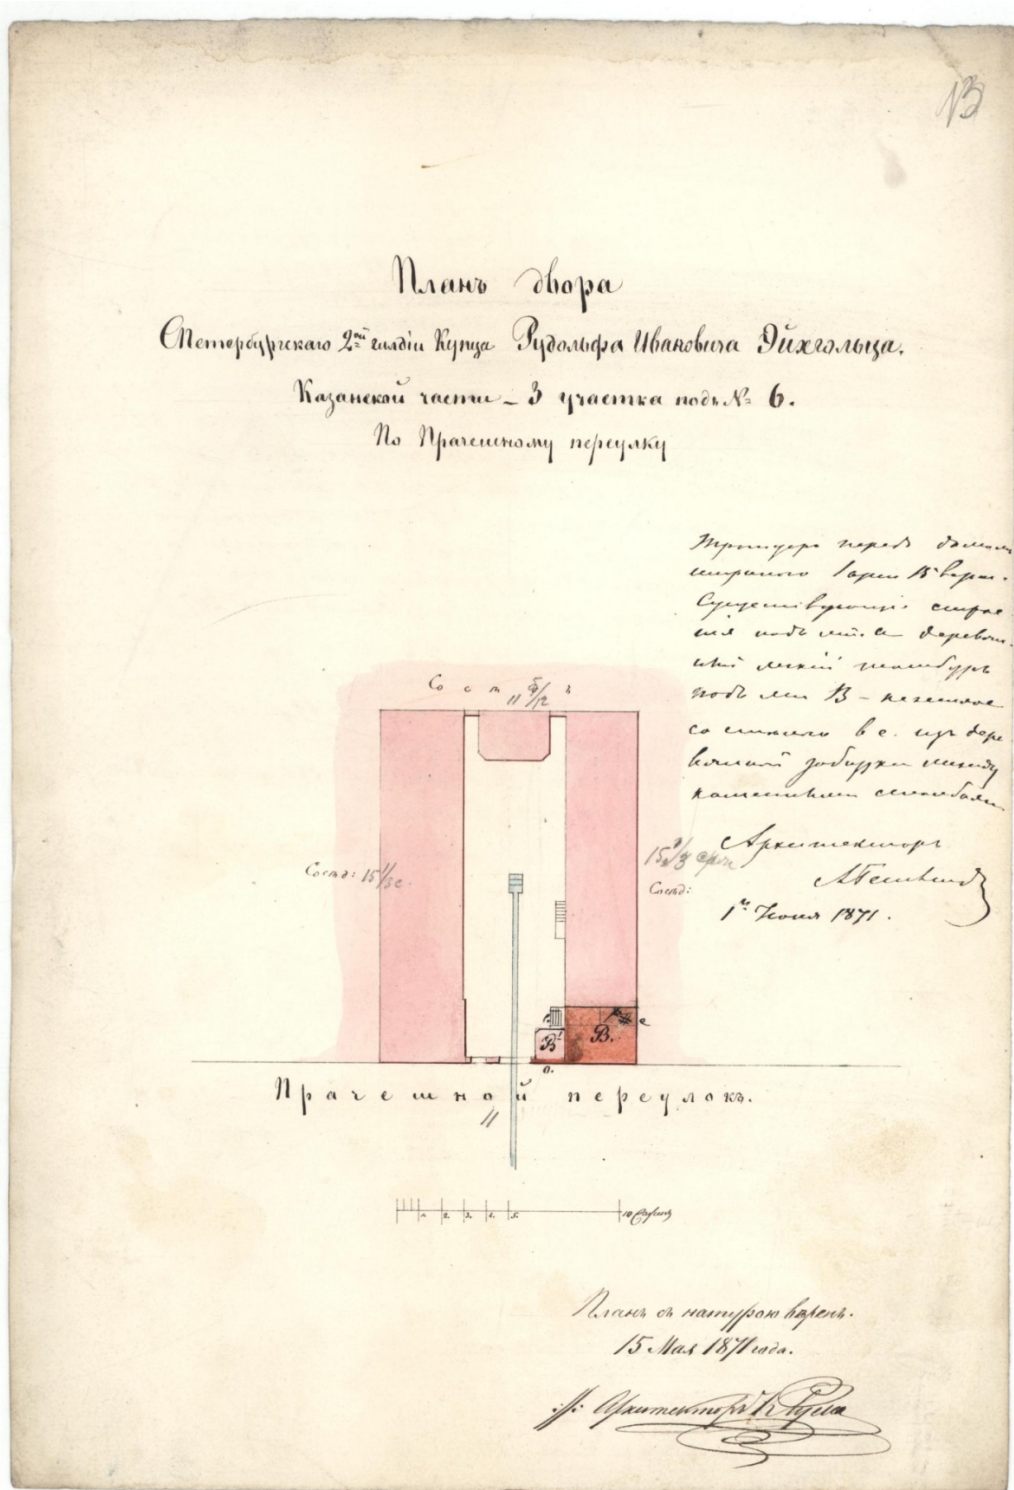 13
Планъ двора
СПетербургскаго 2ой гильдіи Купца Рудольфа Ивановича Эйхгольца.
Казанской части – 3 участка подъ № 6.
По Прачешному переулку
Тротуаръ передъ домомъ
шириною 1 арш 15 верш.
Существующія строе-
нія подъ а деревян-
ный тамбуръ
подъ В – каменное
со
между
каменными столбами
Архитекторъ
1го Іюня 1871.
Сосѣдъ
11 5/12
Сосѣд: 15 1/3 с.
15 2/3
Сосѣд:
В'
В.
е
а.
Прачешной переулокъ.
1. 2. 3. 4. 5. 10 Саженъ
Планъ съ натурою вѣренъ.
15 Мая 1871 года.
Архитекторъ